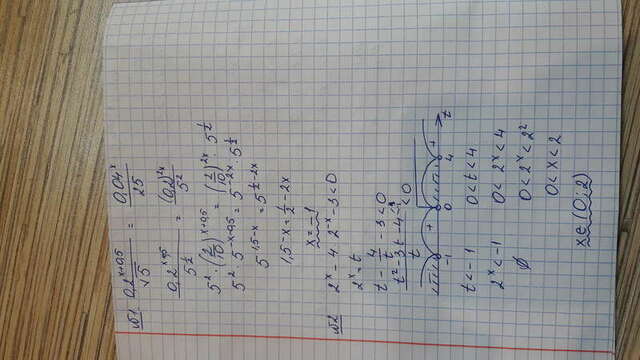 №1. 0,2^(x+0,5) / √5 = 0,04^x / 25
0,2^(x+0,5) / 5^(1/2) = (0,2)^(2x) / 5^2
5^2 · (2/10)^(x+0,5) = (2/10)^(2x) · 5^(1/2)
5^2 · 5^(-x-0,5) = 5^(-2x) · 5^(1/2)
5^(1,5-x) = 5^(1/2-2x)
1,5-x = 1/2 - 2x
x = -1
№2 2^x - 4 2^(-x) - 3 < 0
2^x = t
t - 4/t - 3 < 0
(t^2 - 3t - 4) / t < 0
- + - +
-1 0 4 t
t < -1 0 < t < 4
2^x < -1 0 < 2^x < 4
∅ 0 < 2^x < 2^2
0 < x < 2
x ∈ (0; 2)